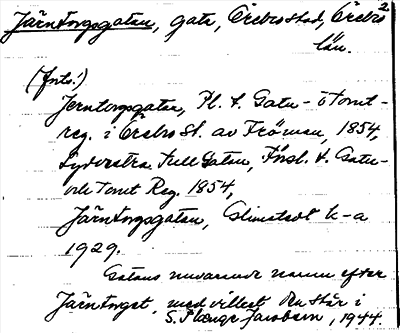 2
Järntorgsgatan, gata, Örebro stad, Örebro
län.
(forts.)
Jerntorgsgatan, Pl. t. Gatu- o Tomt-
reg. i Örebro St. av Fröman, 1854,
Sydöstra Tullgatan, Försl. t. Gatu-
och Tomt Reg. 1854,
Järntorgsgatan, Almstedt k-a
1929.
Gatans nuvarande namn efter
Järntorget, med vilket den står i
S. Plenge Jacobsen, 1944